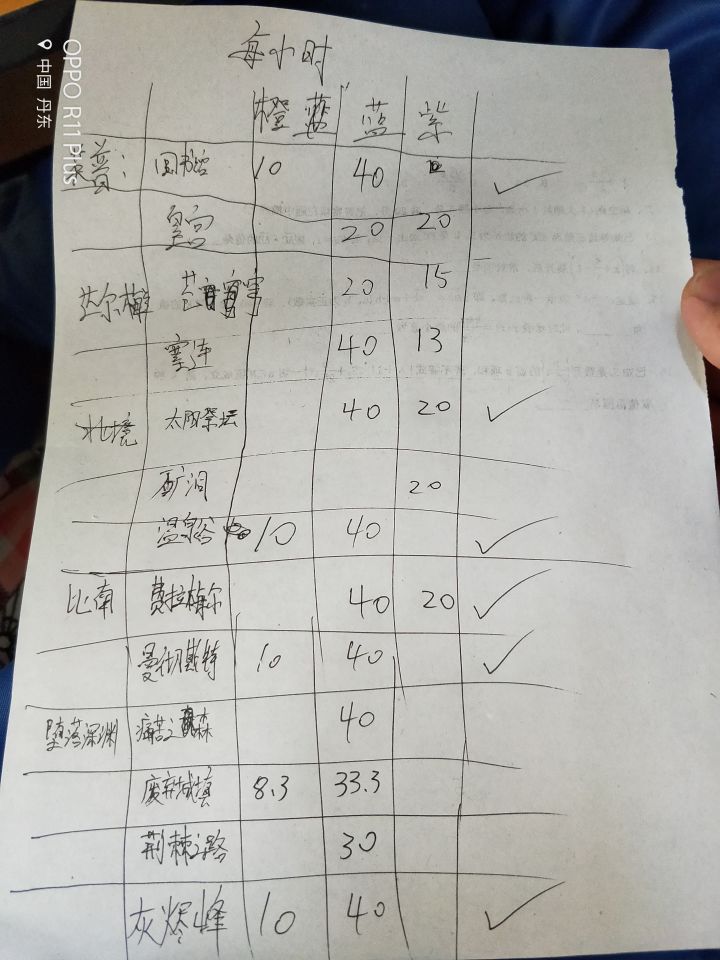 每小时
橙 蓝 紫
普: 图书馆 10 40
皇宫 20 20
达尔 20 15
塞连 40 13
北境 太阳祭坛 40 20
矿洞 20
温泉谷 10 40
比南 费拉梅尔 40 20
曼彻斯特 10 40
堕落深渊 痛苦之森 40
废弃城镇 8.3 33.3
荆棘之路 30
灰烬峰 10 40
OPPO R11 Plus
中国 丹东